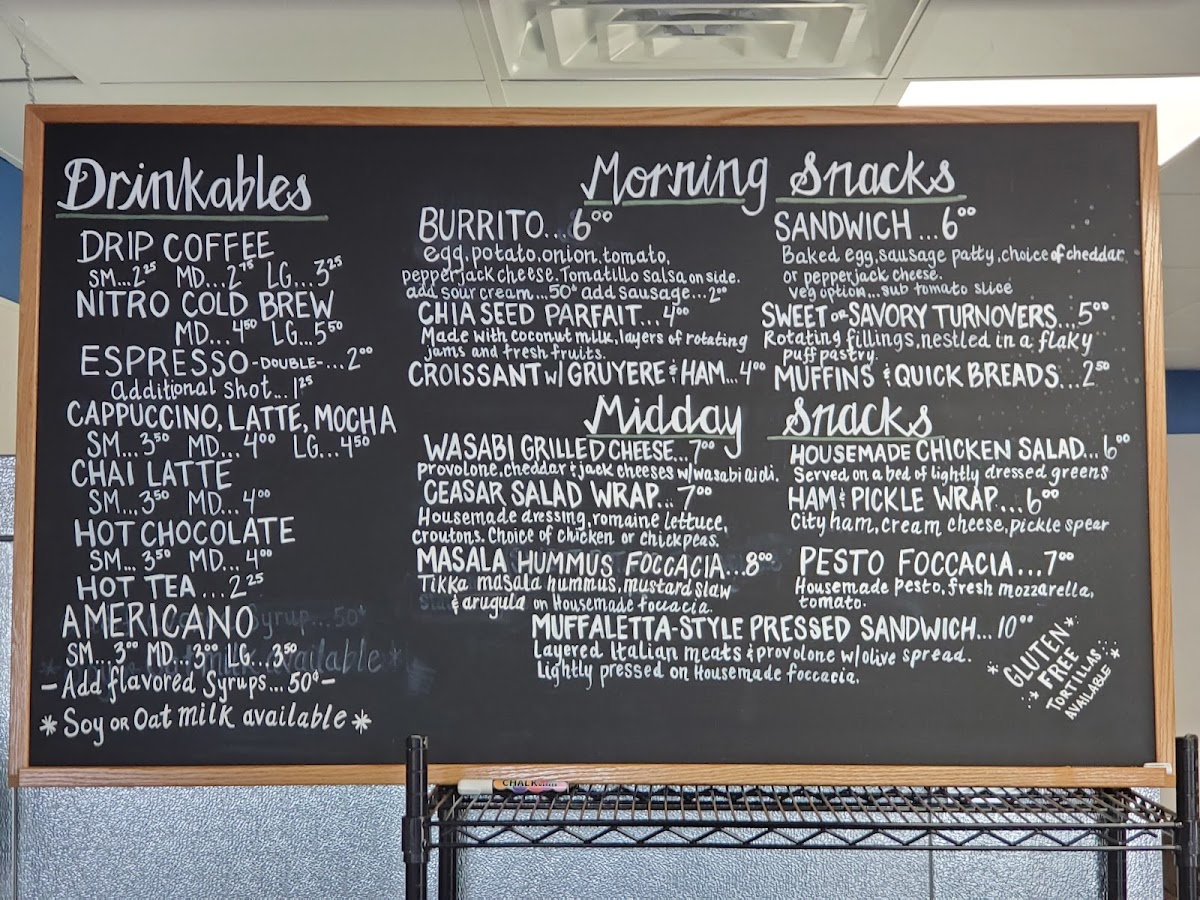 Drinkables
DRIP COFFEE
SM...2.25 MD...2.75 LG...3.25
NITRO COLD BREW
MD...4.50 LG...5.50
ESPRESSO -DOUBLE-...2.00
Additional shot...1.25
CAPPUCCINO, LATTE, MOCHA
SM...3.50 MD...4.00 LG...4.50
CHAI LATTE
SM...3.50 MD...4.00
HOT CHOCOLATE
SM...3.50 MD...4.00
HOT TEA...2.25
AMERICANO
SM...3.00 MD...3.00 LG...3.50
-Add flavored Syrups...50¢-
*Soy OR Oat milk available*
Morning Snacks
BURRITO...6.00
egg, potato, onion, tomato,
pepperjack cheese. Tomatillo salsa on side.
add sour cream...50¢ add sausage...2.00
CHIA SEED PARFAIT...4.00
Made with coconut milk, layers of rotating
jams and fresh fruits.
CROISSANT w/ GRUYERE & HAM...4.00
SANDWICH...6.00
Baked egg, sausage patty, choice of cheddar
or pepperjack cheese.
veg option...sub tomato slice
SWEET OR SAVORY TURNOVERS...5.00
Rotating fillings, nestled in a flaky
puff pastry.
MUFFINS & QUICK BREADS...2.50
Midday Snacks
WASABI GRILLED CHEESE...7.00
provolone, cheddar & jack cheeses w/wasabi aioli.
CEASAR SALAD WRAP...7.00
Housemade dressing, romaine lettuce,
croutons. Choice of chicken or chickpeas.
MASALA HUMMUS FOCCACIA...8.00
Tikka masala hummus, mustard slaw
& arugula on Housemade foccacia.
HOUSEMADE CHICKEN SALAD...6.00
Served on a bed of lightly dressed greens
HAM & PICKLE WRAP...6.00
City ham, cream cheese, pickle spear
PESTO FOCCACIA...7.00
Housemade pesto, fresh mozzarella,
tomato.
MUFFALETTA-STYLE PRESSED SANDWICH...10.00
Layered Italian meats & provolone w/olive spread.
Lightly pressed on Housemade foccacia.
GLUTEN
FREE
TORTILLAS
AVAILABLE
CHALK